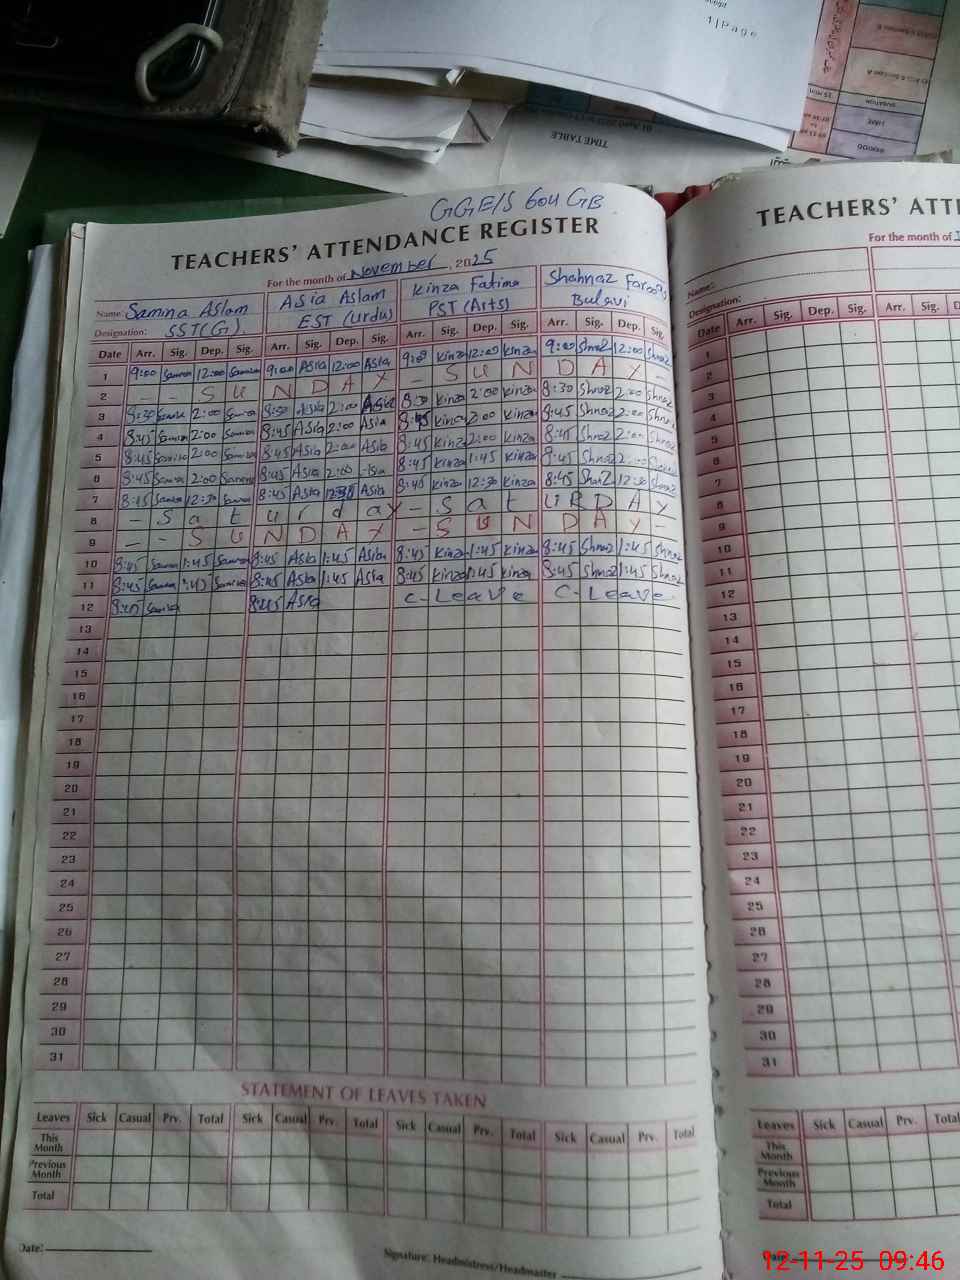 1 | Page
TIME TABLE
GGE/S 604 GB
TEACHERS' ATTENDANCE REGISTER
For the month of November, 2025
Name: Samina Aslam Asia Aslam Kinza Fatima Shahnaz Farooq
Designation: SST(G) EST (Urdu) PST (Arts)
Date Arr. Sig. Dep. Sig. Arr. Sig. Dep. Sig. Arr. Sig. Dep. Sig. Arr. Sig. Dep. Sig.
1 9:00 Samina 12:00 Samina 9:00 Asia 12:00 Asia 9:00 Kinza 12:00 Kinza 9:00 Shnaz 12:00 Shnaz
2 - - S U N D A Y - S U N D A Y -
3 8:30 Samina 2:00 Samina 8:30 Asia 2:00 Asia 8:30 Kinza 2:00 Kinza 8:30 Shnaz 2:00 Shnaz
4 8:45 Samina 2:00 Samina 8:45 Asia 2:00 Asia 8:45 Kinza 2:00 Kinza 8:45 Shnaz 2:00 Shnaz
5 8:45 Samina 2:00 Samina 8:45 Asia 2:00 Asia 8:45 Kinza 2:00 Kinza 8:45 Shnaz 2:00 Shnaz
6 8:45 Samina 2:00 Samina 8:45 Asia 2:00 Asia 8:45 Kinza 1:45 Kinza 8:45 Shnaz 2:00
7 8:45 Samina 12:30 Samina 8:45 Asia 12:30 Asia 8:45 Kinza 12:30 Kinza 8:45 Shnaz 12:30 Shnaz
8 - S a t u r d a y - S a t U R D A Y
9 - - S U N D A Y - S U N D A Y -
10 8:45 Samina 1:45 Samina 8:45 Asia 1:45 Asia 8:45 Kinza 1:45 Kinza 8:45 Shnaz 1:45 Shnaz
11 8:45 Samina 1:45 Samina 8:45 Asia 1:45 Asia 8:45 Kinza 1:45 Kinza 8:45 Shnaz 1:45 Shnaz
12 8:45 Samina 8:45 Asia C-Leave C-Leave
13
14
15
16
17
18
19
20
21
22
23
24
25
26
27
28
29
30
31
STATEMENT OF LEAVES TAKEN
Leaves Sick Casual Prv. Total Sick Casual Prv. Total Sick Casual Prv. Total Sick Casual Prv. Total
This Month
Previous Month
Total
Date:
Signature: Headmistress/Headmaster
TEACHERS' ATTE
For the month of
Name:
Designation:
Date Arr. Sig. Dep. Sig. Arr. Sig.
1
2
3
4
5
6
7
8
9
10
11
12
13
14
15
16
17
18
19
20
21
22
23
24
25
26
27
28
29
30
31
Leaves Sick Casual Prv. Total
This Month
Previous Month
Total
Date:
12-11-25 09:46